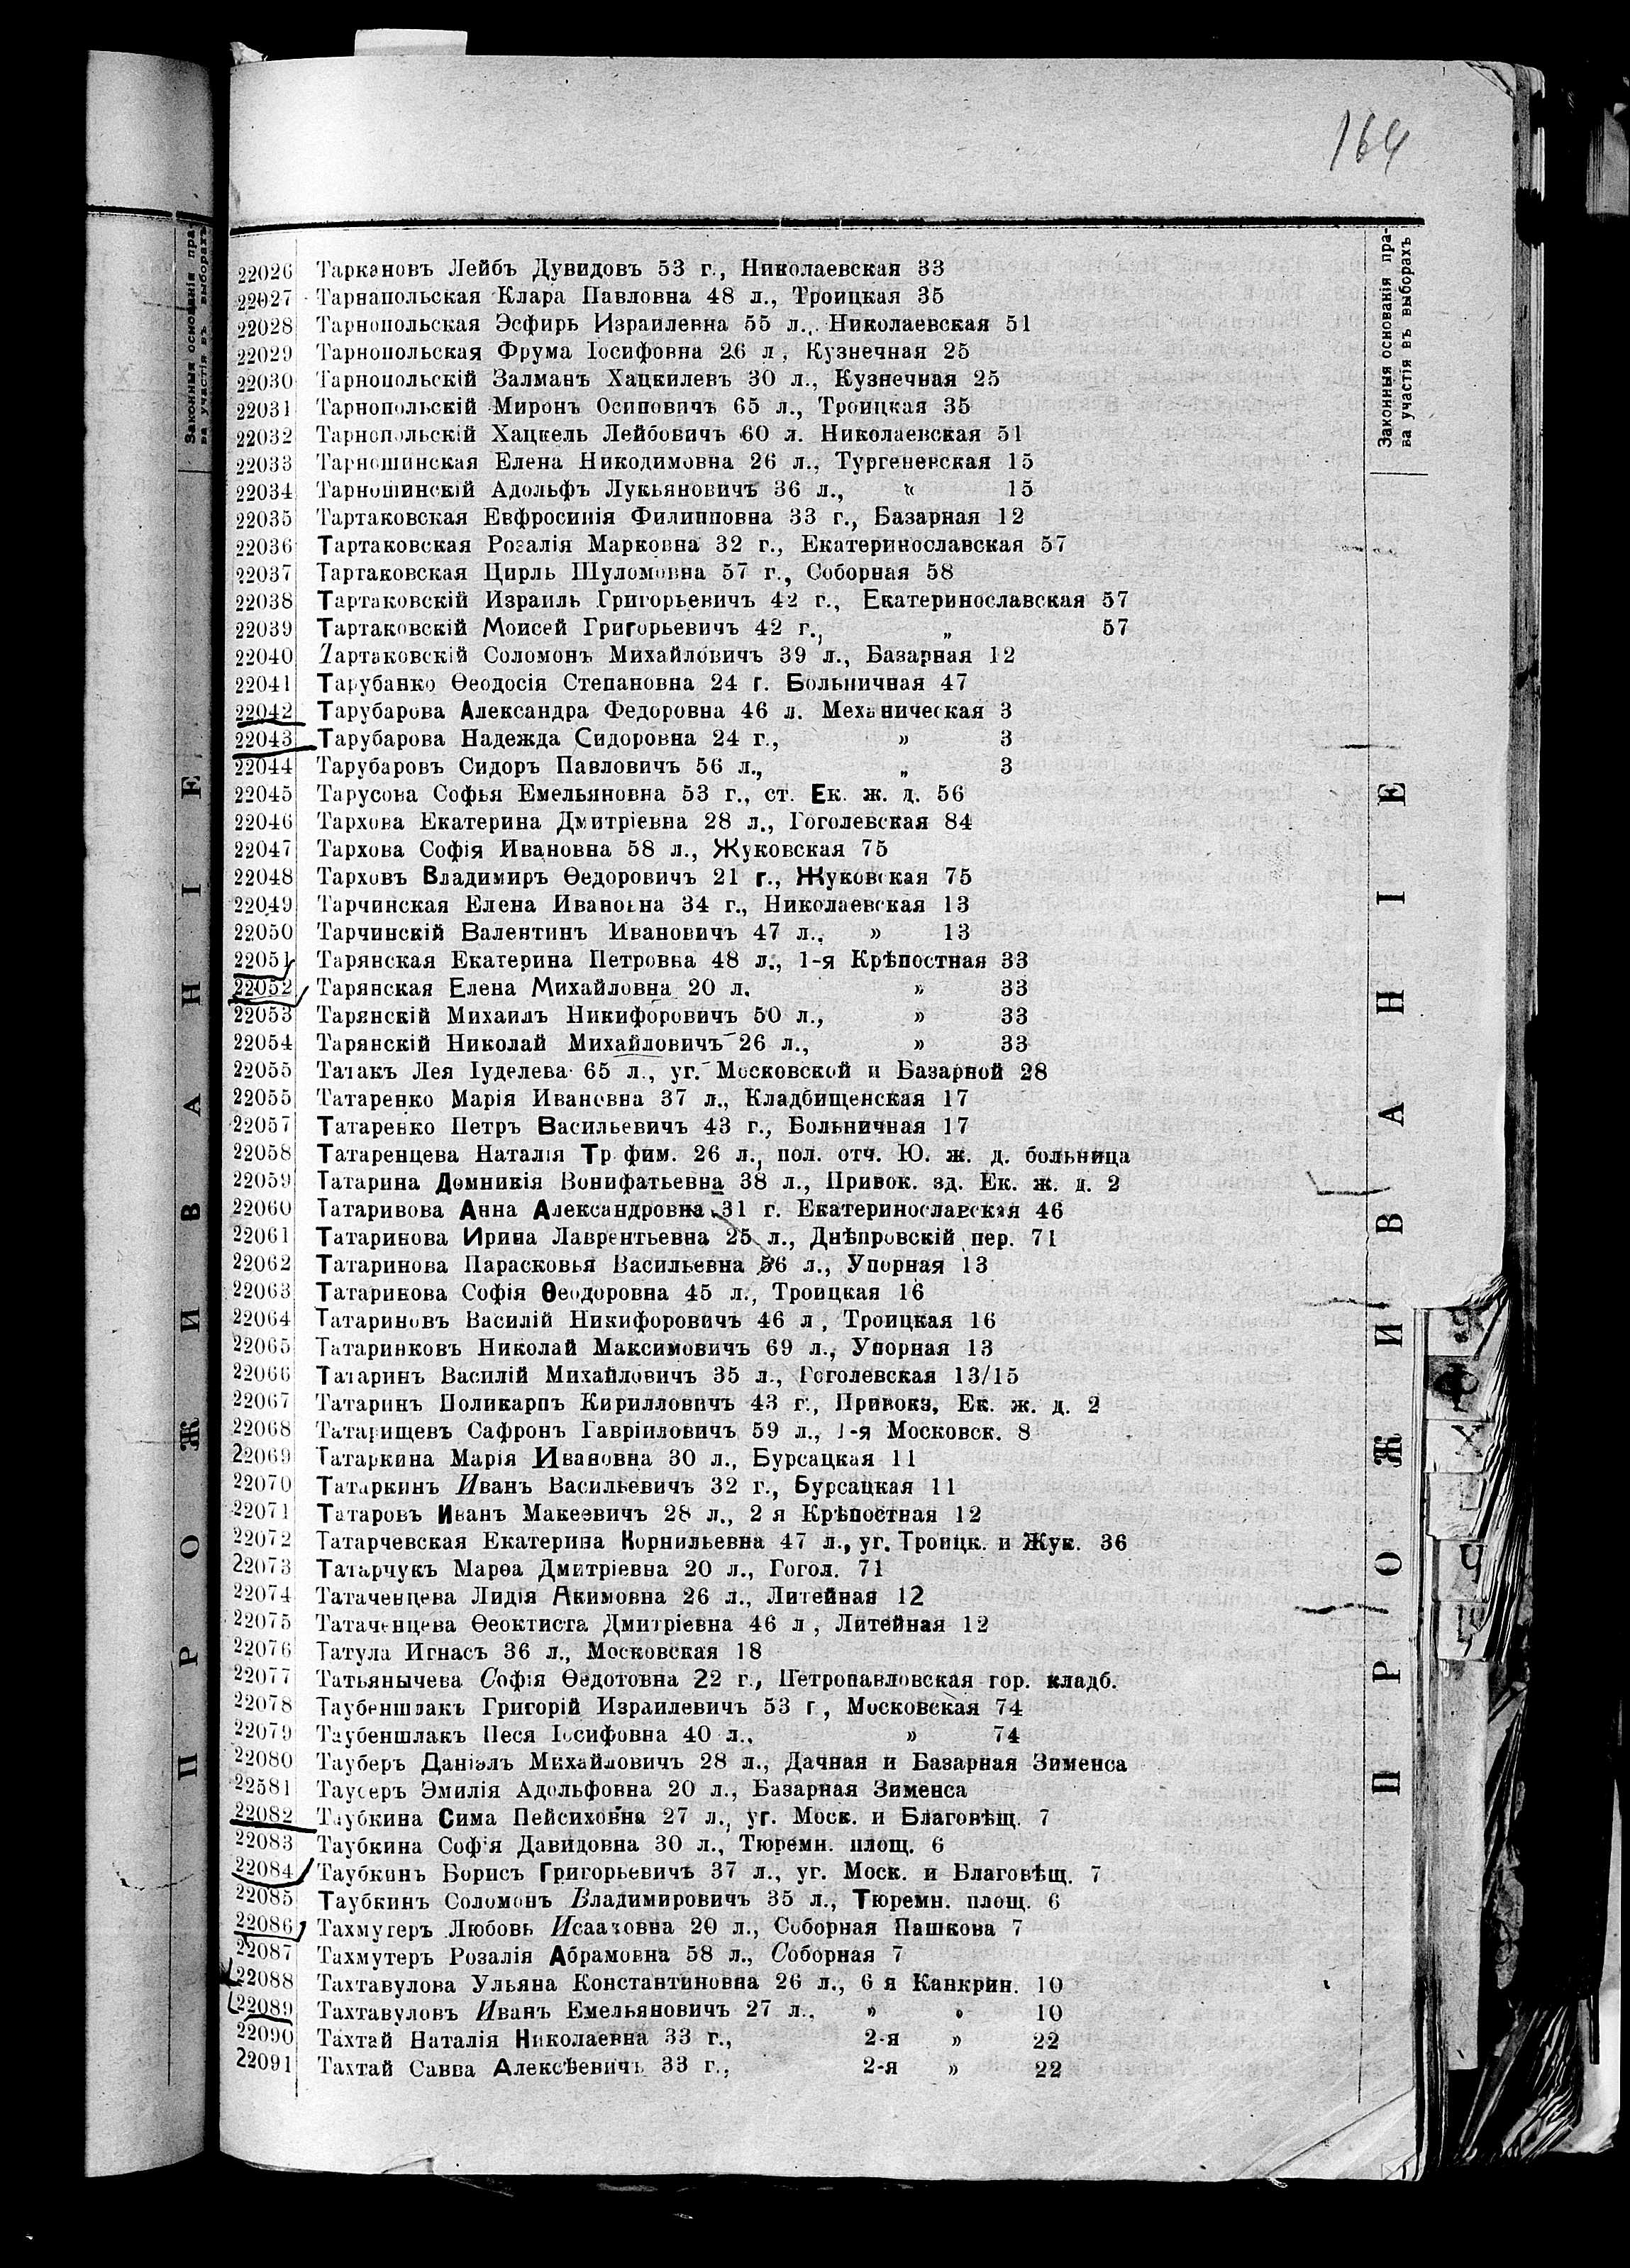 164
Законныя основанія пра-
ва участія въ выборахъ
ПРОЖИВАНІЕ
22026 Таркановъ Лейбъ Дувидовъ 53 г., Николаевская 33
22027 Тарнапольская Клара Павловна 48 л., Троицкая 35
22028 Тарнопольская Эсфирь Израилевна 55 л., Николаевская 51
22029 Тарнопольская Фрума Іосифовна 26 л, Кузнечная 25
22030 Тарнопольскій Залманъ Хацкилевъ 30 л., Кузнечная 25
22031 Тарнопольскій Миронъ Осиповичъ 65 л., Троицкая 35
22032 Тарнопольскій Хацкель Лейбовичъ 60 л. Николаевская 51
22033 Тарношинская Елена Никодимовна 26 л., Тургеневская 15
22034 Тарношинскій Адольфъ Лукьяновичъ 36 л., " 15
22035 Тартаковская Евфросинія Филипповна 33 г., Базарная 12
22036 Тартаковская Розалія Марковна 32 г., Екатеринославская 57
22037 Тартаковская Цирль Шуломовна 57 г., Соборная 58
22038 Тартаковскій Израиль Григорьевичъ 42 г., Екатеринославская 57
22039 Тартаковскій Моисей Григорьевичъ 42 г., „ 57
22040 Тартаковскій Соломонъ Михайловичъ 39 л., Базарная 12
22041 Тарубанко Ѳеодосія Степановна 24 г. Больничная 47
22042 Тарубарова Александра Федоровна 46 л. Механическая 3
22043 Тарубарова Надежда Сидоровна 24 г., » 3
22044 Тарубаровъ Сидоръ Павловичъ 56 л., „ 3
22045 Тарусова Софья Емельяновна 53 г., ст. Ек. ж. д. 56
22046 Тархова Екатерина Дмитріевна 28 л., Гоголевская 84
22047 Тархова Софія Ивановна 58 л., Жуковская 75
22048 Тарховъ Владимиръ Ѳедоровичъ 21 г., Жуковская 75
22049 Тарчинская Елена Ивановна 34 г., Николаевская 13
22050 Тарчинскій Валентинъ Ивановичъ 47 л., » 13
22051 Тарянская Екатерина Петровна 48 л., 1-я Крѣпостная 33
22052 Тарянская Елена Михайловна 20 л. » 33
22053 Тарянскій Михаилъ Никифоровичъ 50 л., » 33
22054 Тарянскій Николай Михайловичъ 26 л., » 33
22055 Татакъ Лея Іуделева 65 л., уг. Московской и Базарной 28
22055 Татаренко Марія Ивановна 37 л., Кладбищенская 17
22057 Татаренко Петръ Васильевичъ 43 г., Больничная 17
22058 Татаренцева Наталія Тр фим. 26 л., пол. отч. Ю. ж. д. больница
22059 Татарина Домникія Вонифатьевна 38 л., Привок. зд. Ек. ж. д. 2
22060 Татаривова Анна Александровна 31 г. Екатеринославская 46
22061 Татаринова Ирина Лаврентьевна 25 л., Днѣпровскій пер. 71
22062 Татаринова Парасковья Васильевна 56 л., Упорная 13
22063 Татаринова Софія Ѳеодоровна 45 л., Троицкая 16
22064 Татариновъ Василій Никифоровичъ 46 л, Троицкая 16
22065 Татаринковъ Николай Максимовичъ 69 л., Упорная 13
22066 Татаринъ Василій Михайловичъ 35 л., Гоголевская 13/15
22067 Татаринъ Поликарпъ Кирилловичъ 43 г., Привокз, Ек. ж. д. 2
22068 Татарищевъ Сафронъ Гавріиловичъ 59 л., 1-я Московск. 8
22069 Татаркина Марія Ивановна 30 л., Бурсацкая 11
22070 Татаркинъ Иванъ Васильевичъ 32 г., Бурсацкая 11
22071 Татаровъ Иванъ Макеевичъ 28 л., 2 я Крѣпостная 12
22072 Татарчевская Екатерина Корнильевна 47 л., уг. Троицк. и Жук. 36
22073 Татарчукъ Марѳа Дмитріевна 20 л., Гогол. 71
22074 Татаченцева Лидія Акимовна 26 л., Литейная 12
22075 Татаченцева Ѳеоктиста Дмитріевна 46 л, Литейная 12
22076 Татула Игнасъ 36 л., Московская 18
22077 Татьянычева Софія Ѳедотовна 22 г., Петропавловская гор. кладб.
22078 Таубеншлакъ Григорій Израилевичъ 53 г, Московская 74
22079 Таубеншлакъ Песя Іосифовна 40 л., » 74
22080 Тауберъ Даніэлъ Михайловичъ 28 л., Дачная и Базарная Зименса
22581 Таусеръ Эмилія Адольфовна 20 л., Базарная Зименса
22082 Таубкина Сима Пейсиховна 27 л., уг. Моск. и Благовѣщ. 7
22083 Таубкина Софія Давидовна 30 л., Тюремн. площ. 6
22084 Таубкинъ Борисъ Григорьевичъ 37 л., уг. Моск. и Благовѣщ. 7
22085 Таубкинъ Соломонъ Владимировичъ 35 л., Тюремн. площ. 6
22086 Тахмутеръ Любовь Исааковна 20 л., Соборная Пашкова 7
22087 Тахмутеръ Розалія Абрамовна 58 л., Соборная 7
22088 Тахтавулова Ульяна Константиновна 26 л., 6 я Канкрин. 10
22089 Тахтавуловъ Иванъ Емельяновичъ 27 л., » » 10
22090 Тахтай Наталія Николаевна 33 г., 2-я » 22
22091 Тахтай Савва Алексѣевичъ 33 г., 2-я » 22
Законныя основанія пра-
ва участія въ выборахъ
ПРОЖИВАНІЕ